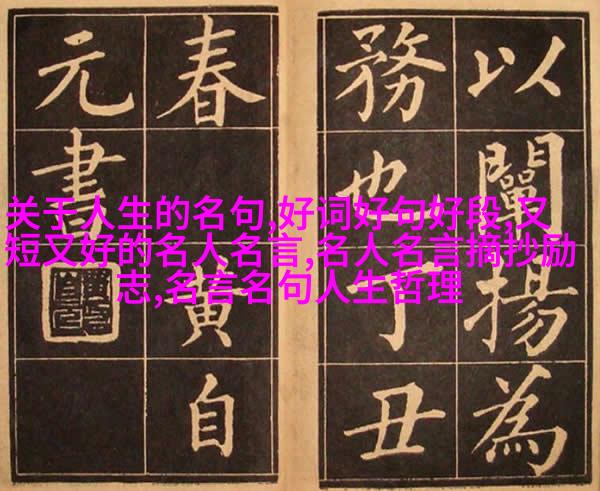 以闡揚為
務也丁丑
春黄自
元書
关于人生的名句,好词好句好段,又
短又好的名人名言,名人名言摘抄励
志,名言名句人生哲理